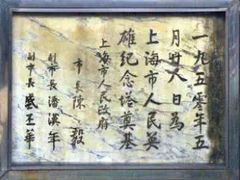 一九五零年五
月廿八日為
上海市人民英
雄紀念塔奠基
上海市人民政府
市長陳毅
副市長潘漢年
副市長盛丕華